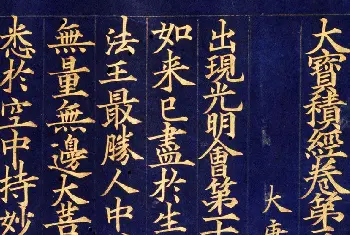 大寶積經卷第
大唐
出現光明會第十
如来已盡於生
法王最勝人中
無量無邊大菩
悉於空中持妙